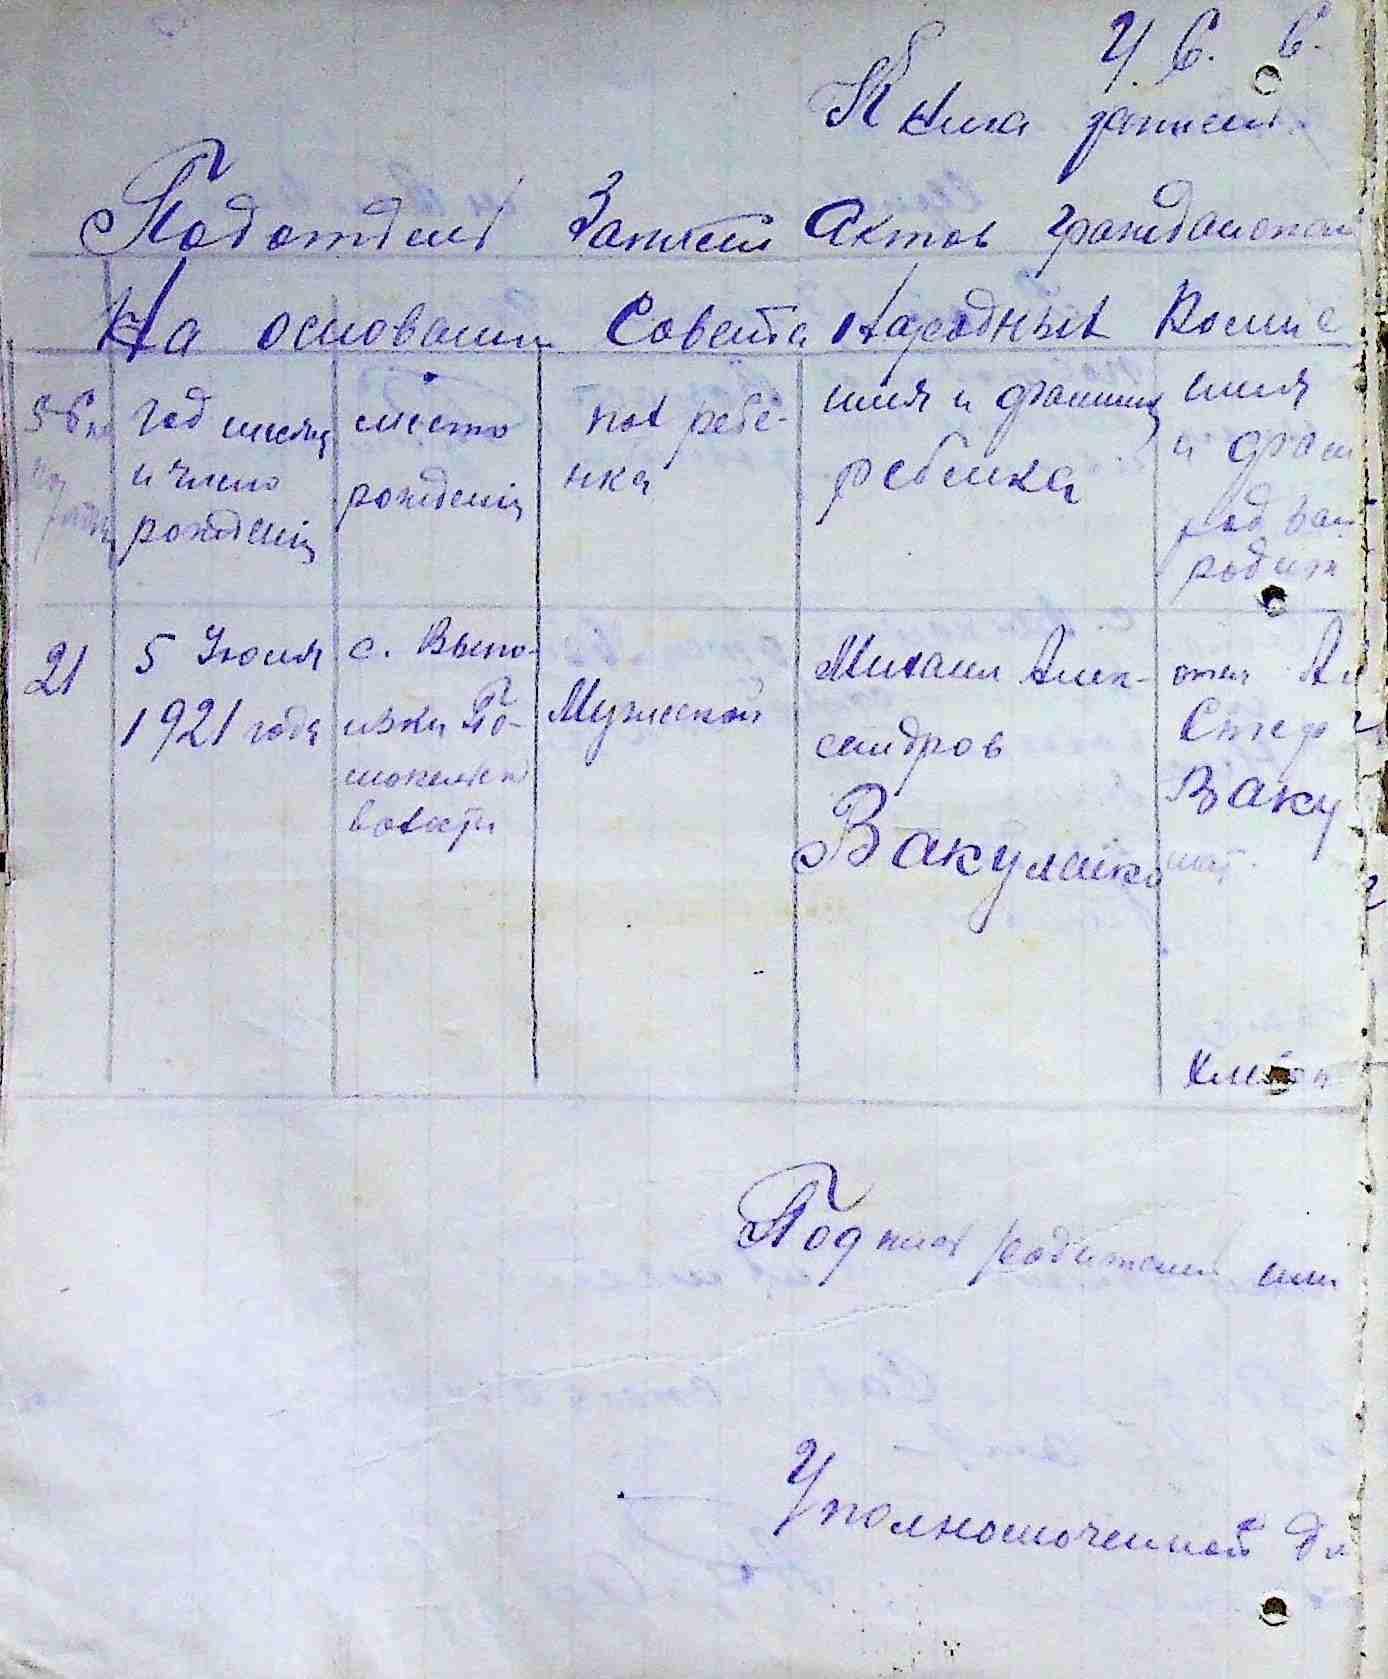 У. С. С.
Книга записи
Подотдел Записи Актов Гражданскаг
На основании Совета Народных Комис
год месяц и число рождения
место рождения
пол ребе-
нка
имя и фамилия
ребенка
имя
и фам
родит
21
5 Июля
1921 года
с. Выпо-
лзки По-
волости
Мужской
Михаил Алек-
сандров
Вакуленко
отец Ал
Стеф
Ваку
мат.
Подпись родителей или
Уполномоченной дл